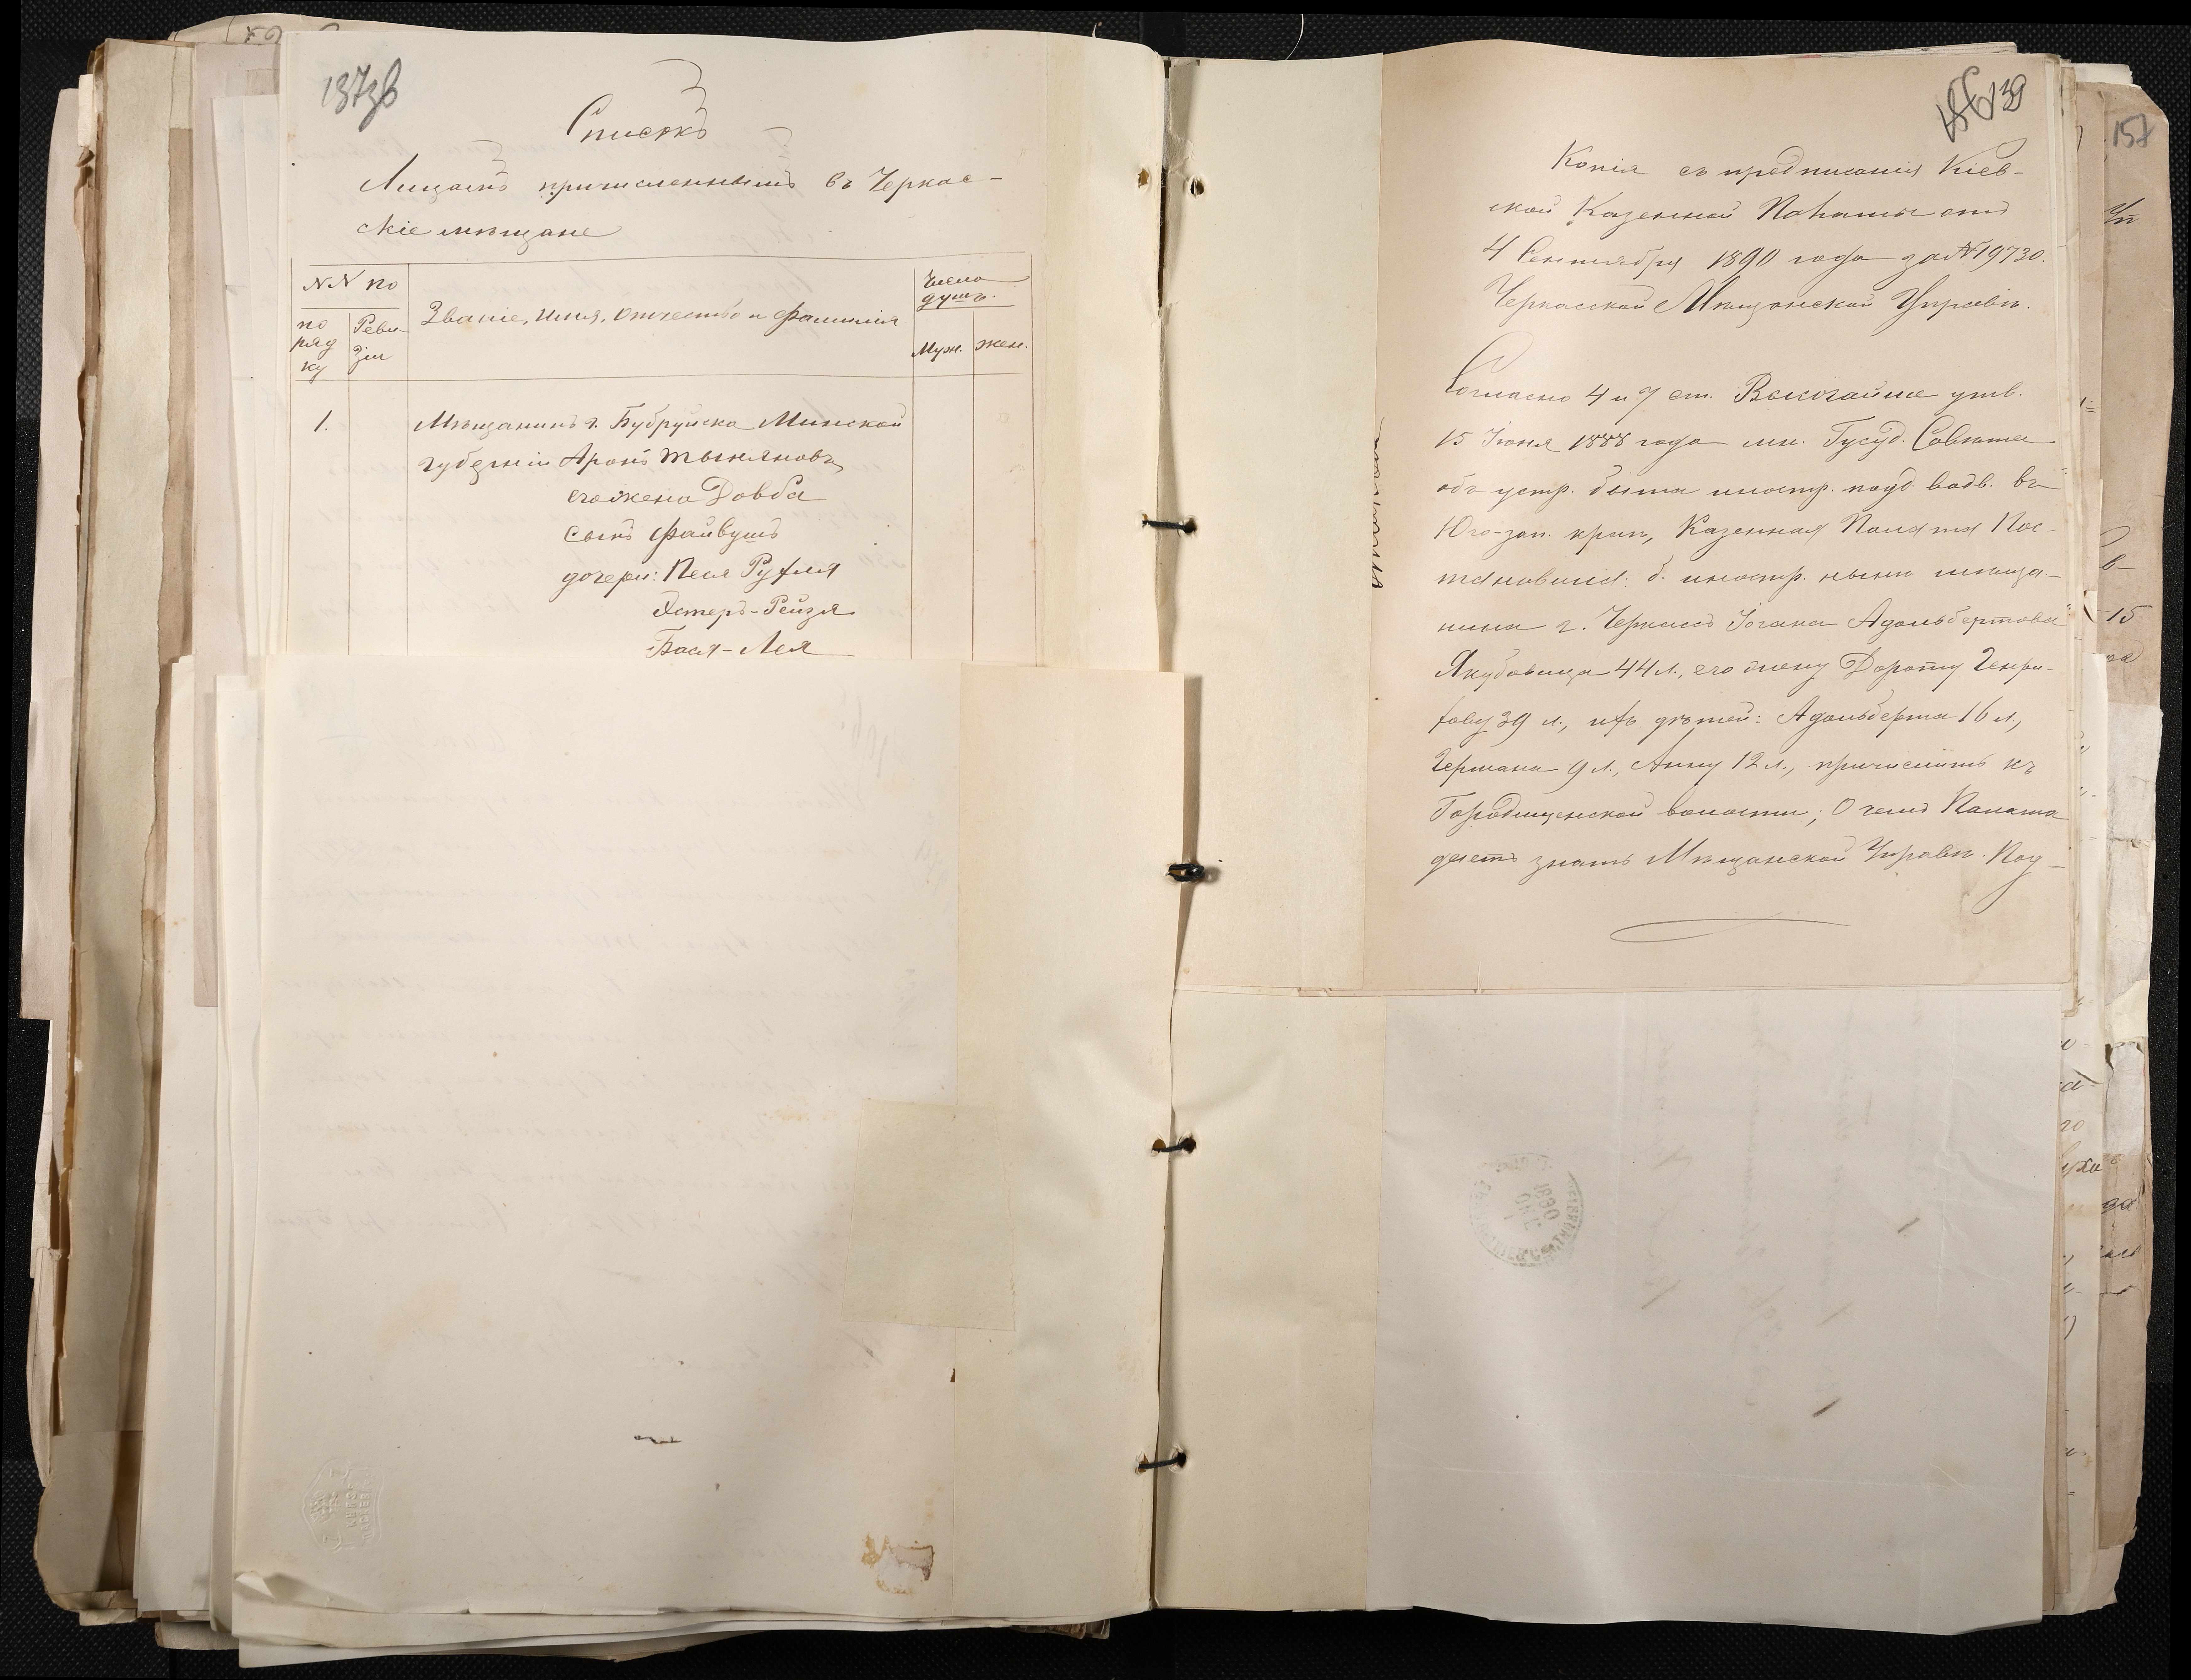 137зв
Списокъ
Лицамъ причисленнымъ въ Черкас-
скіе мѣщане
NN по
по
ряд
ку
Реви-
зіи
Званіе, Имя, Отчество и Фамилія
Число
душъ.
Муж.
жен.
1.
Мѣщанинъ г. Бубруйска Минской
губерніи Аронъ Тыняновъ
его жена Довба
сынъ Файвушъ
дочери: Песя Рухля
Эстеръ-Рейзя
Бася-Лея
139
Копія съ предписанія Кіев-
ской Казенной Палаты отъ
4 Сентября 1890 года за №19730.
Черкасской Мѣщанской Управѣ.
Согласно 4 и 7 ст. Высочайше утв.
15 Іюня 1888 года мн. Госуд. Совѣта
объ устр. быта иностр. позд. водв. въ
Юго-зап. краѣ, Казенная Палата Пос-
тановила: б. иностр. нынѣ мѣща-
нина г. Черкасъ Іогана Адольбертова
Якубовица 44 л., его жену Дороту Генри-
хову 39 л., ихъ дѣтей: Адольберта 16 л.,
Германа 9 л., Анну 12 л., причислить къ
Городищенской волости; О чемъ Палата
даетъ знать Мѣщанской Управѣ. Под-
1890
157
15